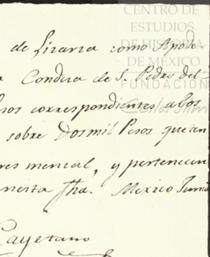 CENTRO DE
ESTUDIOS
DE HISTORIA
DE MÉXICO
FUNDACIÓN
de Lizarza como Apode
Condesa de S. Pedro del
sos correspondientes a los
sobre Dos mil Pesos que en
res mental, y pertenecen
fha. Mexico Junio
Cayetano